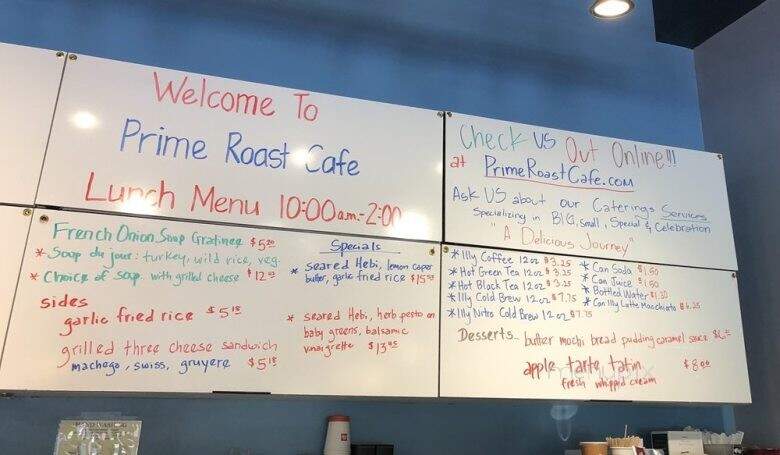 Welcome To
Prime Roast Cafe
Lunch Menu 10:00 a.m.-2:00
Check us Out Online!!!
at PrimeRoastCafe.com
Ask US about our Caterings Services
Specializing in BIG, small, Special & Celebration
"A Delicious Journey"
French Onion Soup Gratinee
* Soup du jour: turkey, wild rice, veg.
* Choice of soup with grilled cheese
sides
garlic fried rice
grilled three cheese sandwich
machego, swiss, gruyere
Specials
* seared Hebi, lemon caper
butter, garlic fried rice
* seared Hebi, herb pesto on
baby greens, balsamic
vinaigrette $13.95
* Illy Coffee 12oz $3.25
* Hot Green Tea 12oz $3.25
* Hot Black Tea 12oz $3.25
* Illy Cold Brew 12oz $7.75
* Illy Nitro Cold Brew 12oz $7.75
* Can Soda $1.50
* Can Juice $1.50
* Bottled Water
* Can Illy Latte Macchiato
Desserts.. butter mochi bread pudding caramel sauce
apple tarte tatin $8.00
fresh whippid cream